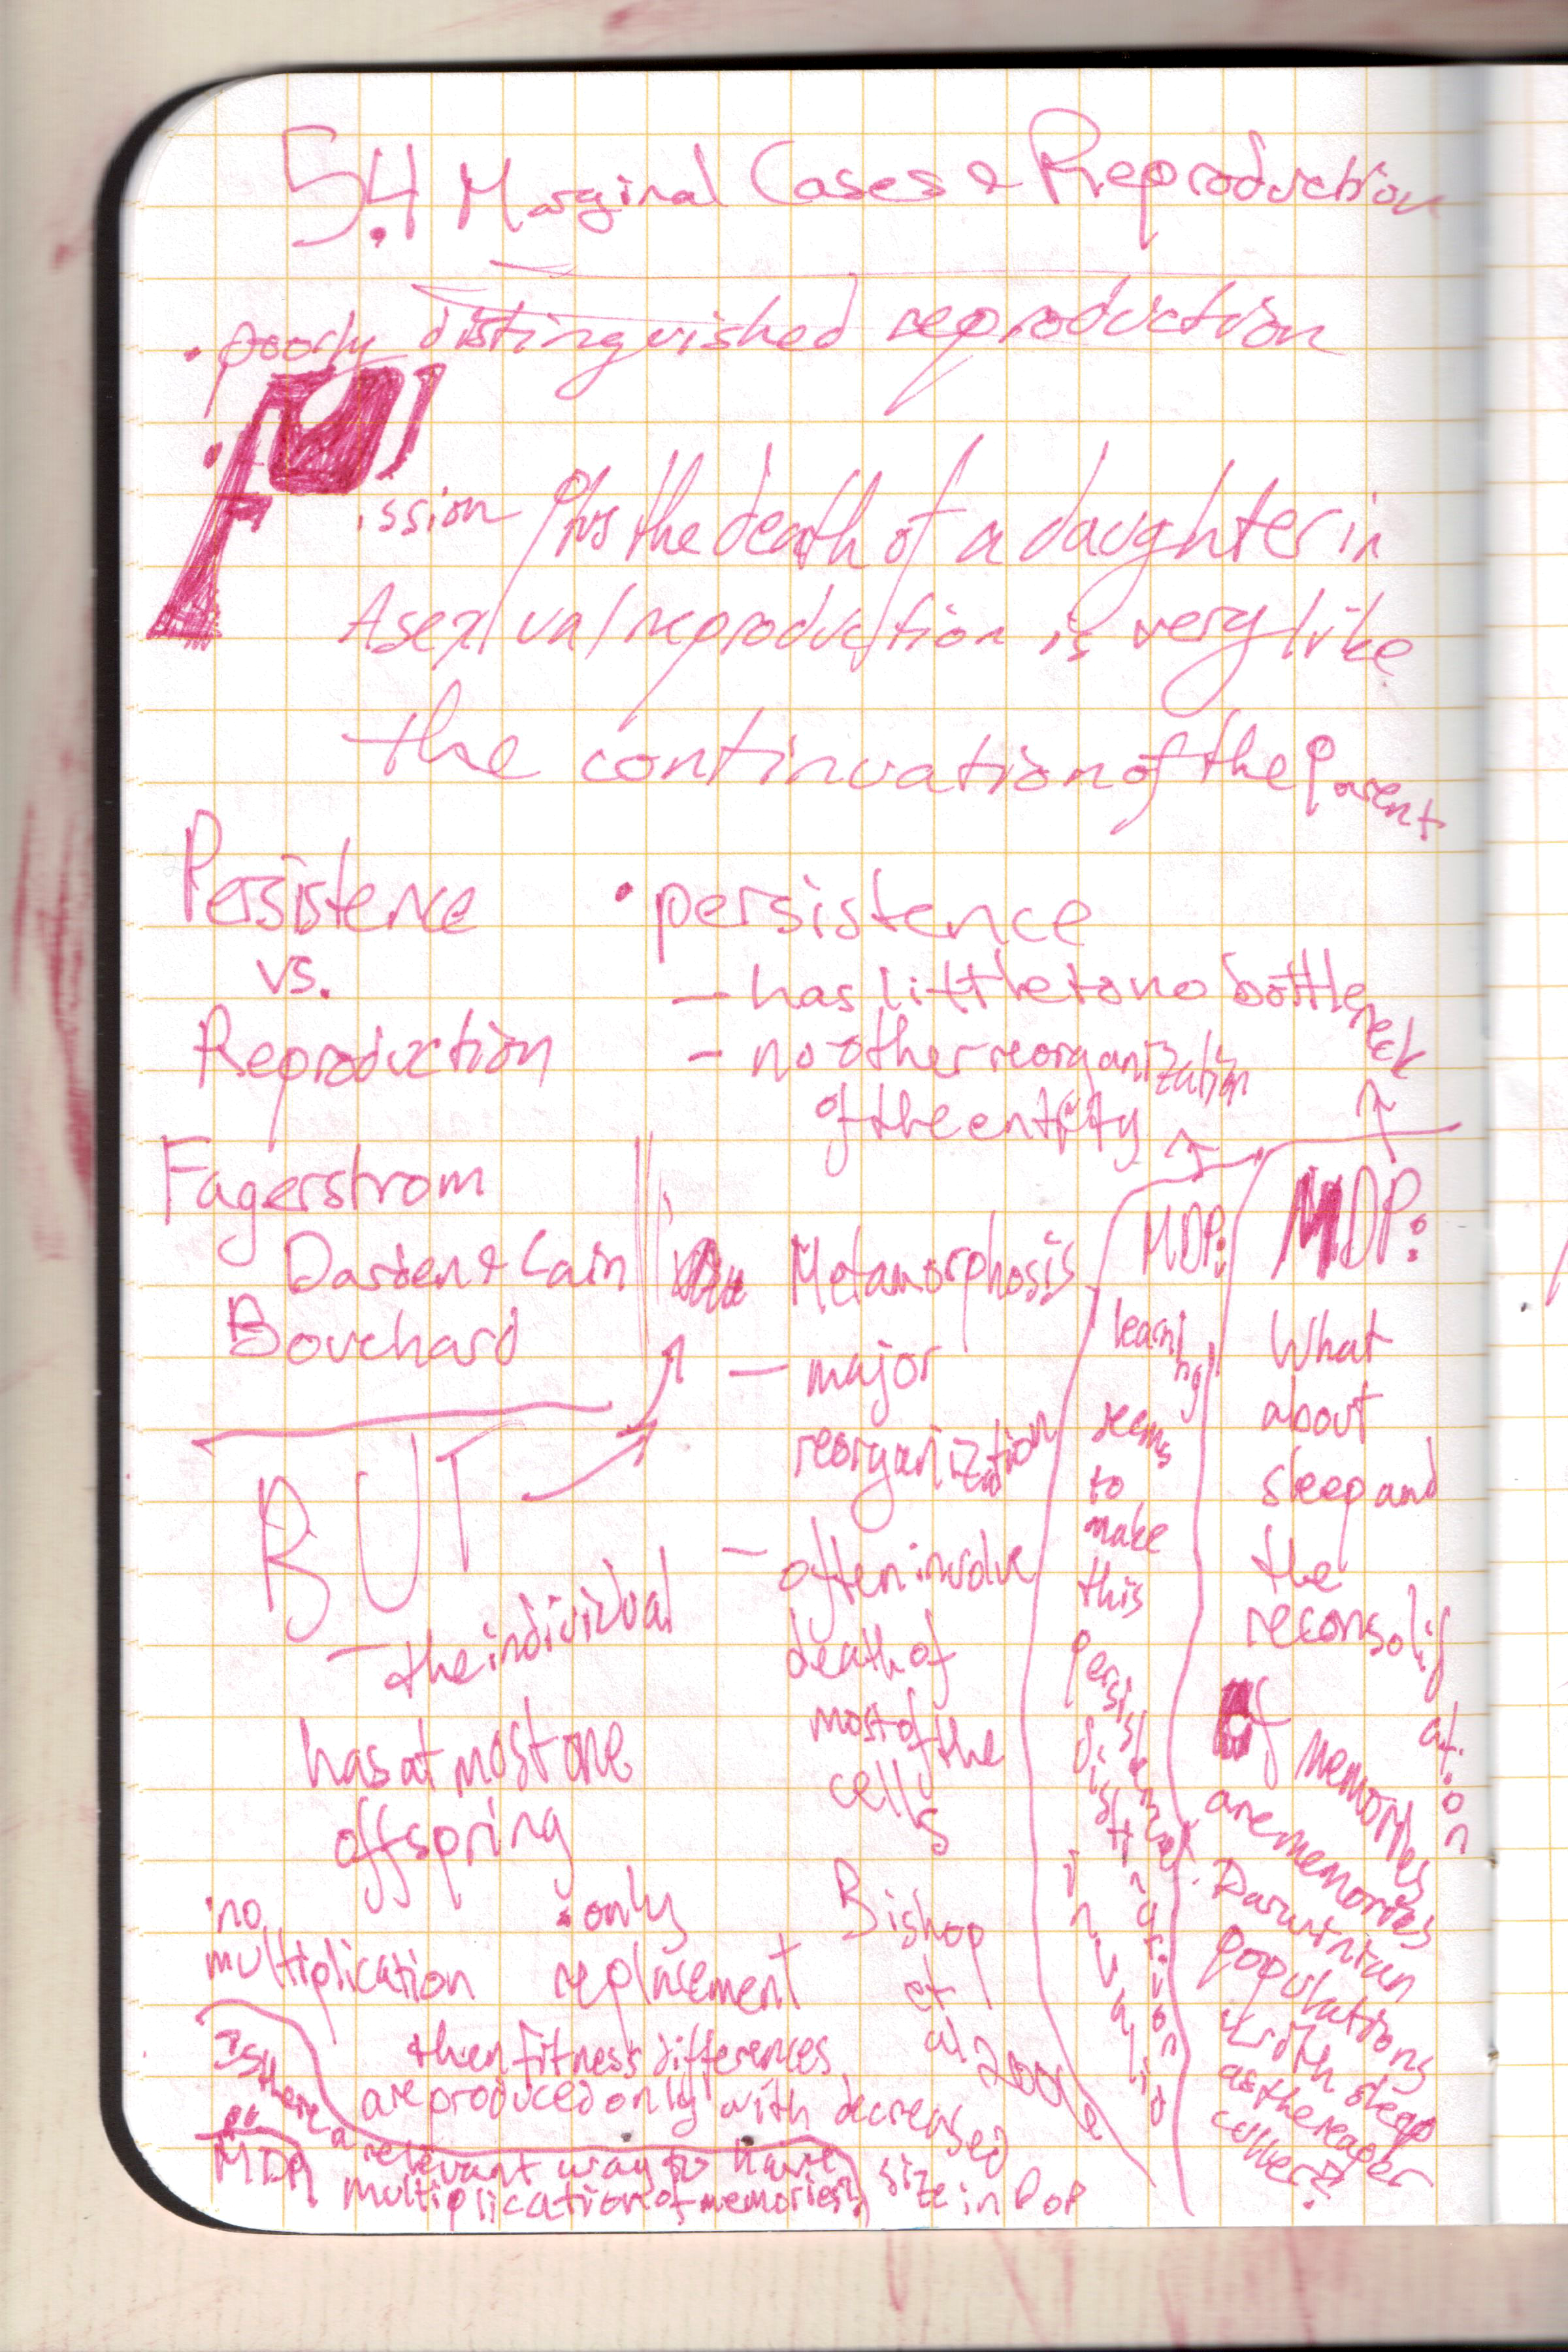 5.4 Marginal Cases & Reproduction
• poorly distinguished reproduction
• Fission Plus the death of a daughter in
Asexual reproduction is very like
the continuation of the parent
Persistence
vs.
Reproduction
• persistence
- has little to no bottleneck
- no other reorganization
of the entity
Fagerstrom
Darden & Cain
Bouchard
BUT
- the individual
has at most one
offspring
no
multiplication
• only
replacement
then fitness differences
are produced only with decreased
size in Pop
Metamorphosis
- major
reorganization
- often involve
death of
most of the
cells
Bishop
et
al
MDP:
learning
seems
to
make
this
persistence
distinction
invalid
MDP:
What
about
sleep and
the
reconsolidation
of memories
are memories
Darwinian
populations
with sleep
as the reaper
MDP:
Is there a
relevant way to have
multiplication of memories?